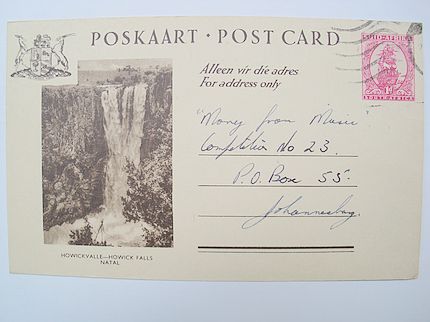 POSKAART · POST CARD
SUID-AFRIKA
1D
SOUTH AFRICA
Alleen vir die adres
For address only
"Money from Music"
Competition No 23.
P.O. Box 55.
Johannesburg.
HOWICKVALLE—HOWICK FALLS
NATAL